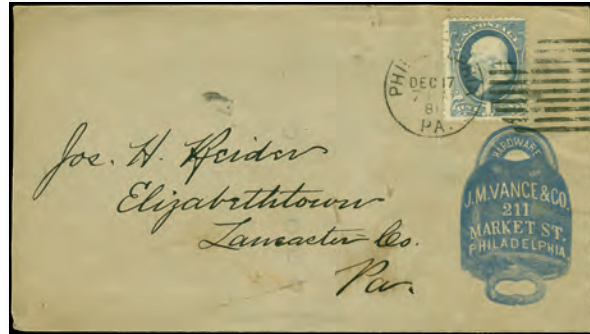 U.S. POSTAGE
PHI
DEC 17
7
81
PA.
Jos. H. Heider
Elizabethtown
Lancaster Co.
Pa.
HARDWARE
J.M. VANCE & CO.
211
MARKET ST.
PHILADELPHIA.